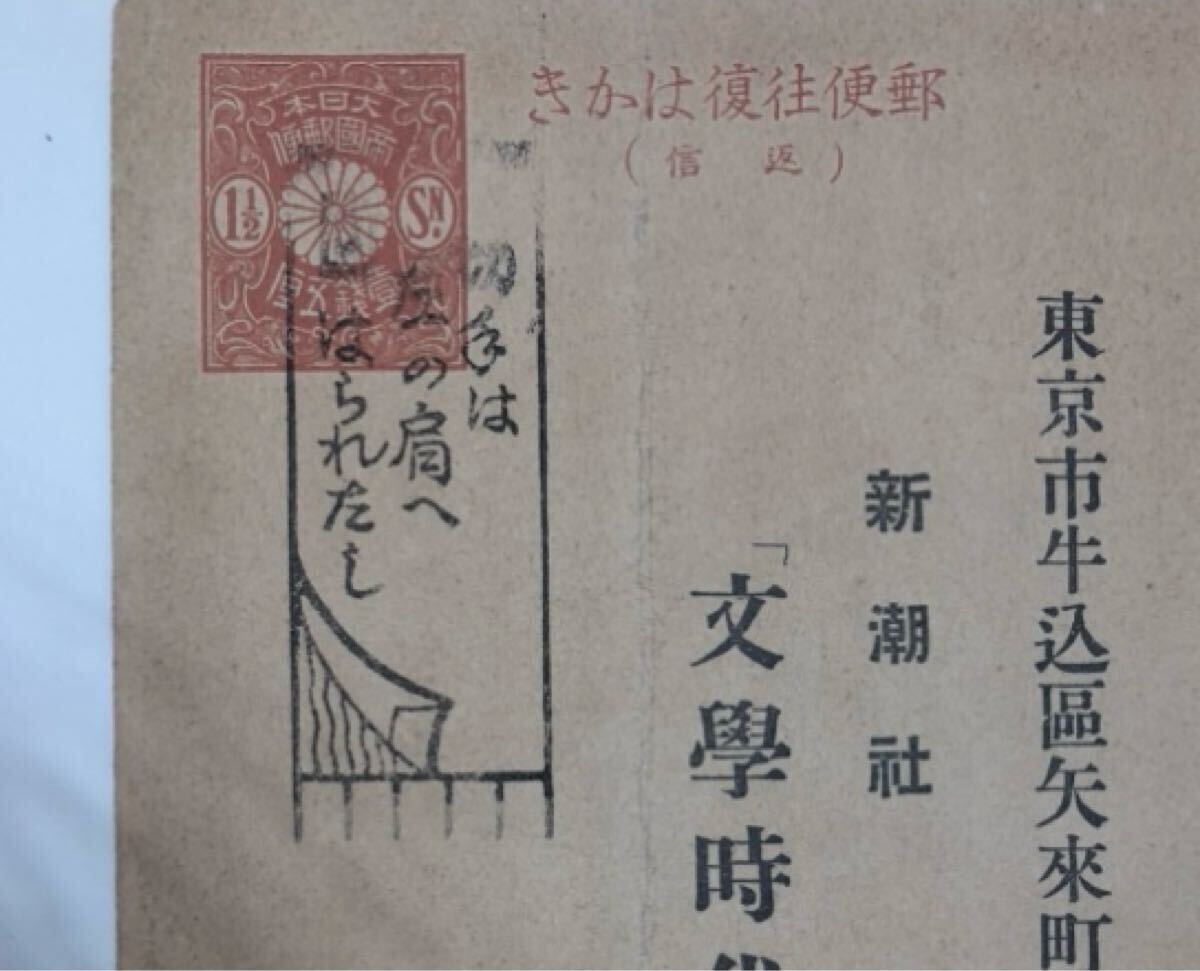 郵便往復はかき
(返信)
大日本
帝國郵便
1½ SN.
壹錢五厘
東京市牛込區矢來町
新潮社
「文學時代
切手は
左の肩へ
はられたし